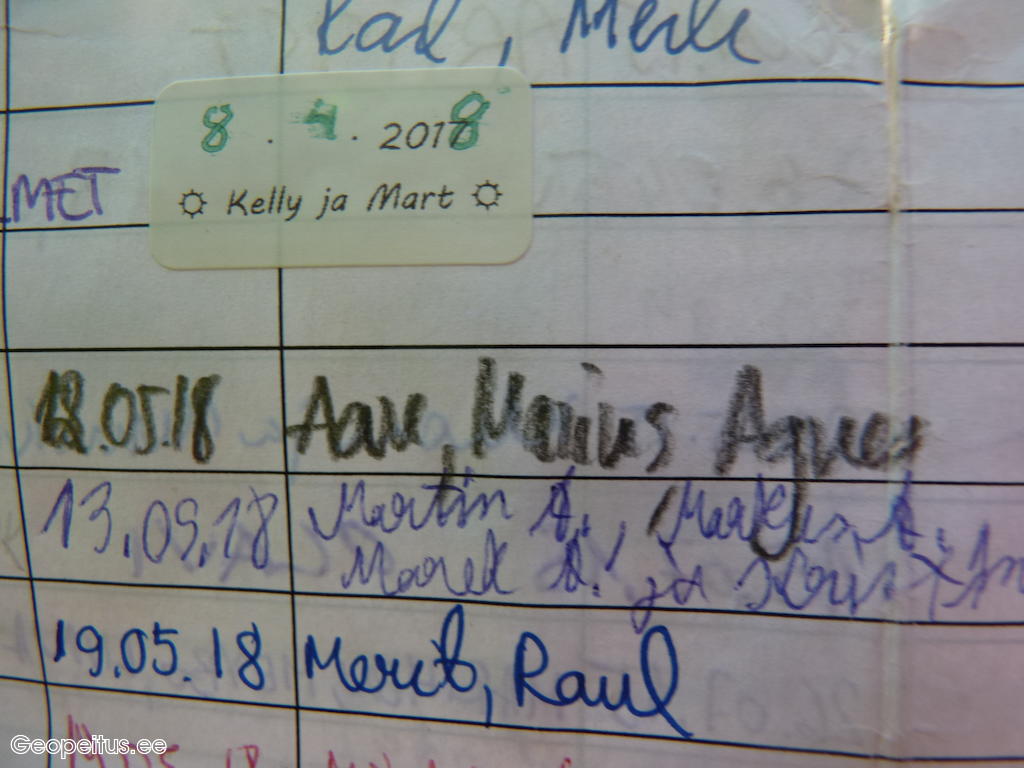 Merle
8 . 4 . 2018
MET
☼ Kelly ja Mart ☼
12.05.18 Aare, Marius Agnes
13.05.18 Martin A., Markus A.
Marek A. ja
19.05.18 Merit, Raul
Geopeitus.ee